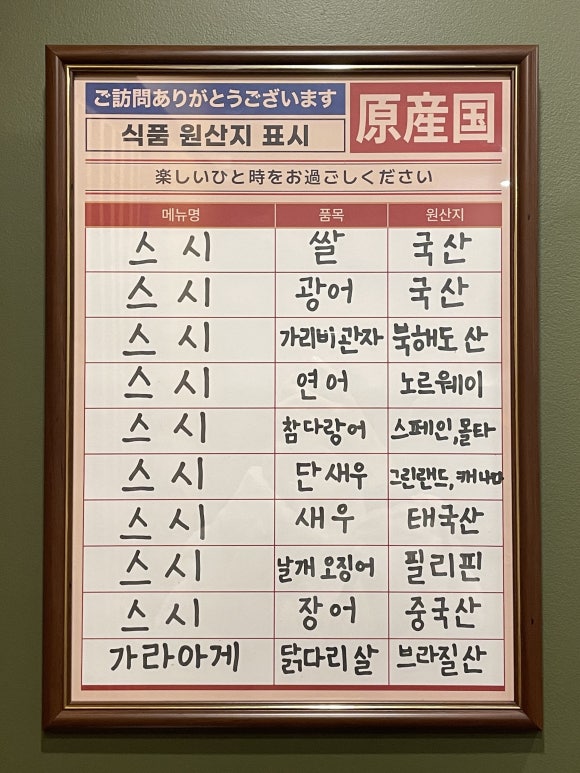 ご訪問ありがとうございます
食品 원산지 표시
原産国
楽しいひと時をお過ごしください
메뉴명 품목 원산지
스시 쌀 국산
스시 광어 국산
스시 가리비관자 북해도 산
스시 연어 노르웨이
스시 참다랑어 스페인,몰타
스시 단새우 그린랜드, 캐나다
스시 새우 태국산
스시 날개 오징어 필리핀
스시 장어 중국산
가라아게 닭다리살 브라질산